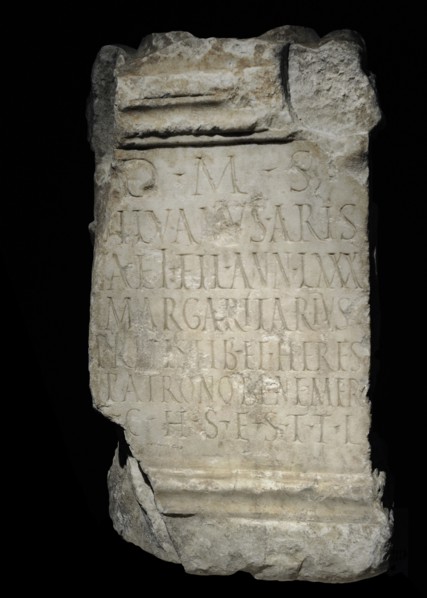 D · M · S
SILVANVS · ARIS
TAEI · FIL · ANN · LXXX
MARGARITARIVS
LIB · ET · HERES
PATRONO BENEMER
C · H · S · E · S · T · T · L